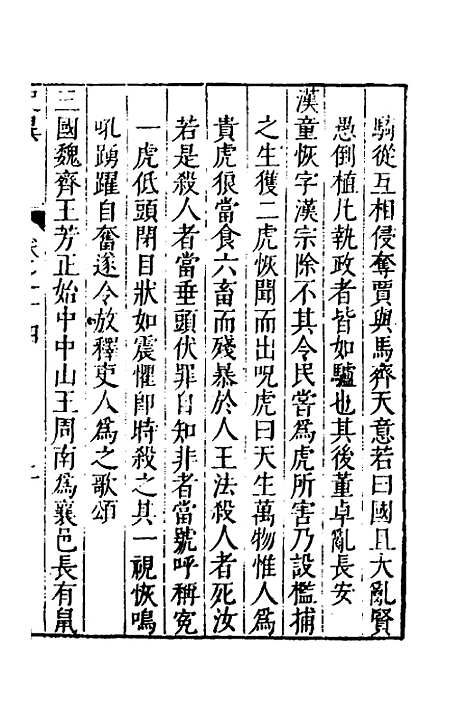 騎從互相侵奪賈與馬齊天意若曰國且大亂賢
愚倒植凡執政者皆如驢也其後董卓亂長安
漢童恢字漢宗除不其令民嘗爲虎所害乃設檻捕
之生獲二虎恢聞而出呪虎曰天生萬物惟人爲
貴虎狼當食六畜而殘暴於人王法殺人者死汝
若是殺人者當垂頭伏罪自知非者當號呼稱冤
一虎低頭閉目狀如震懼卽時殺之其一視恢鳴
吼踴躍自奮遂令放釋吏人爲之歌頌
三國魏齊王芳正始中中山王周南爲襄邑長有鼠
卷之二十四